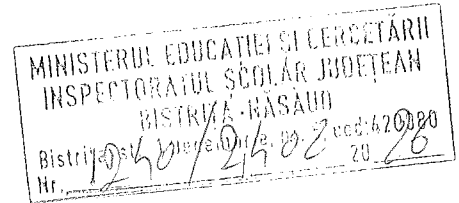 MINISTERUL EDUCAȚIEI ȘI CERCETĂRII
INSPECTORATUL ȘCOLAR JUDEȚEAN
BISTRIȚA-NĂSĂUD
Bistrița, cod: 420080
Nr. 1240 / 24 02 20 26